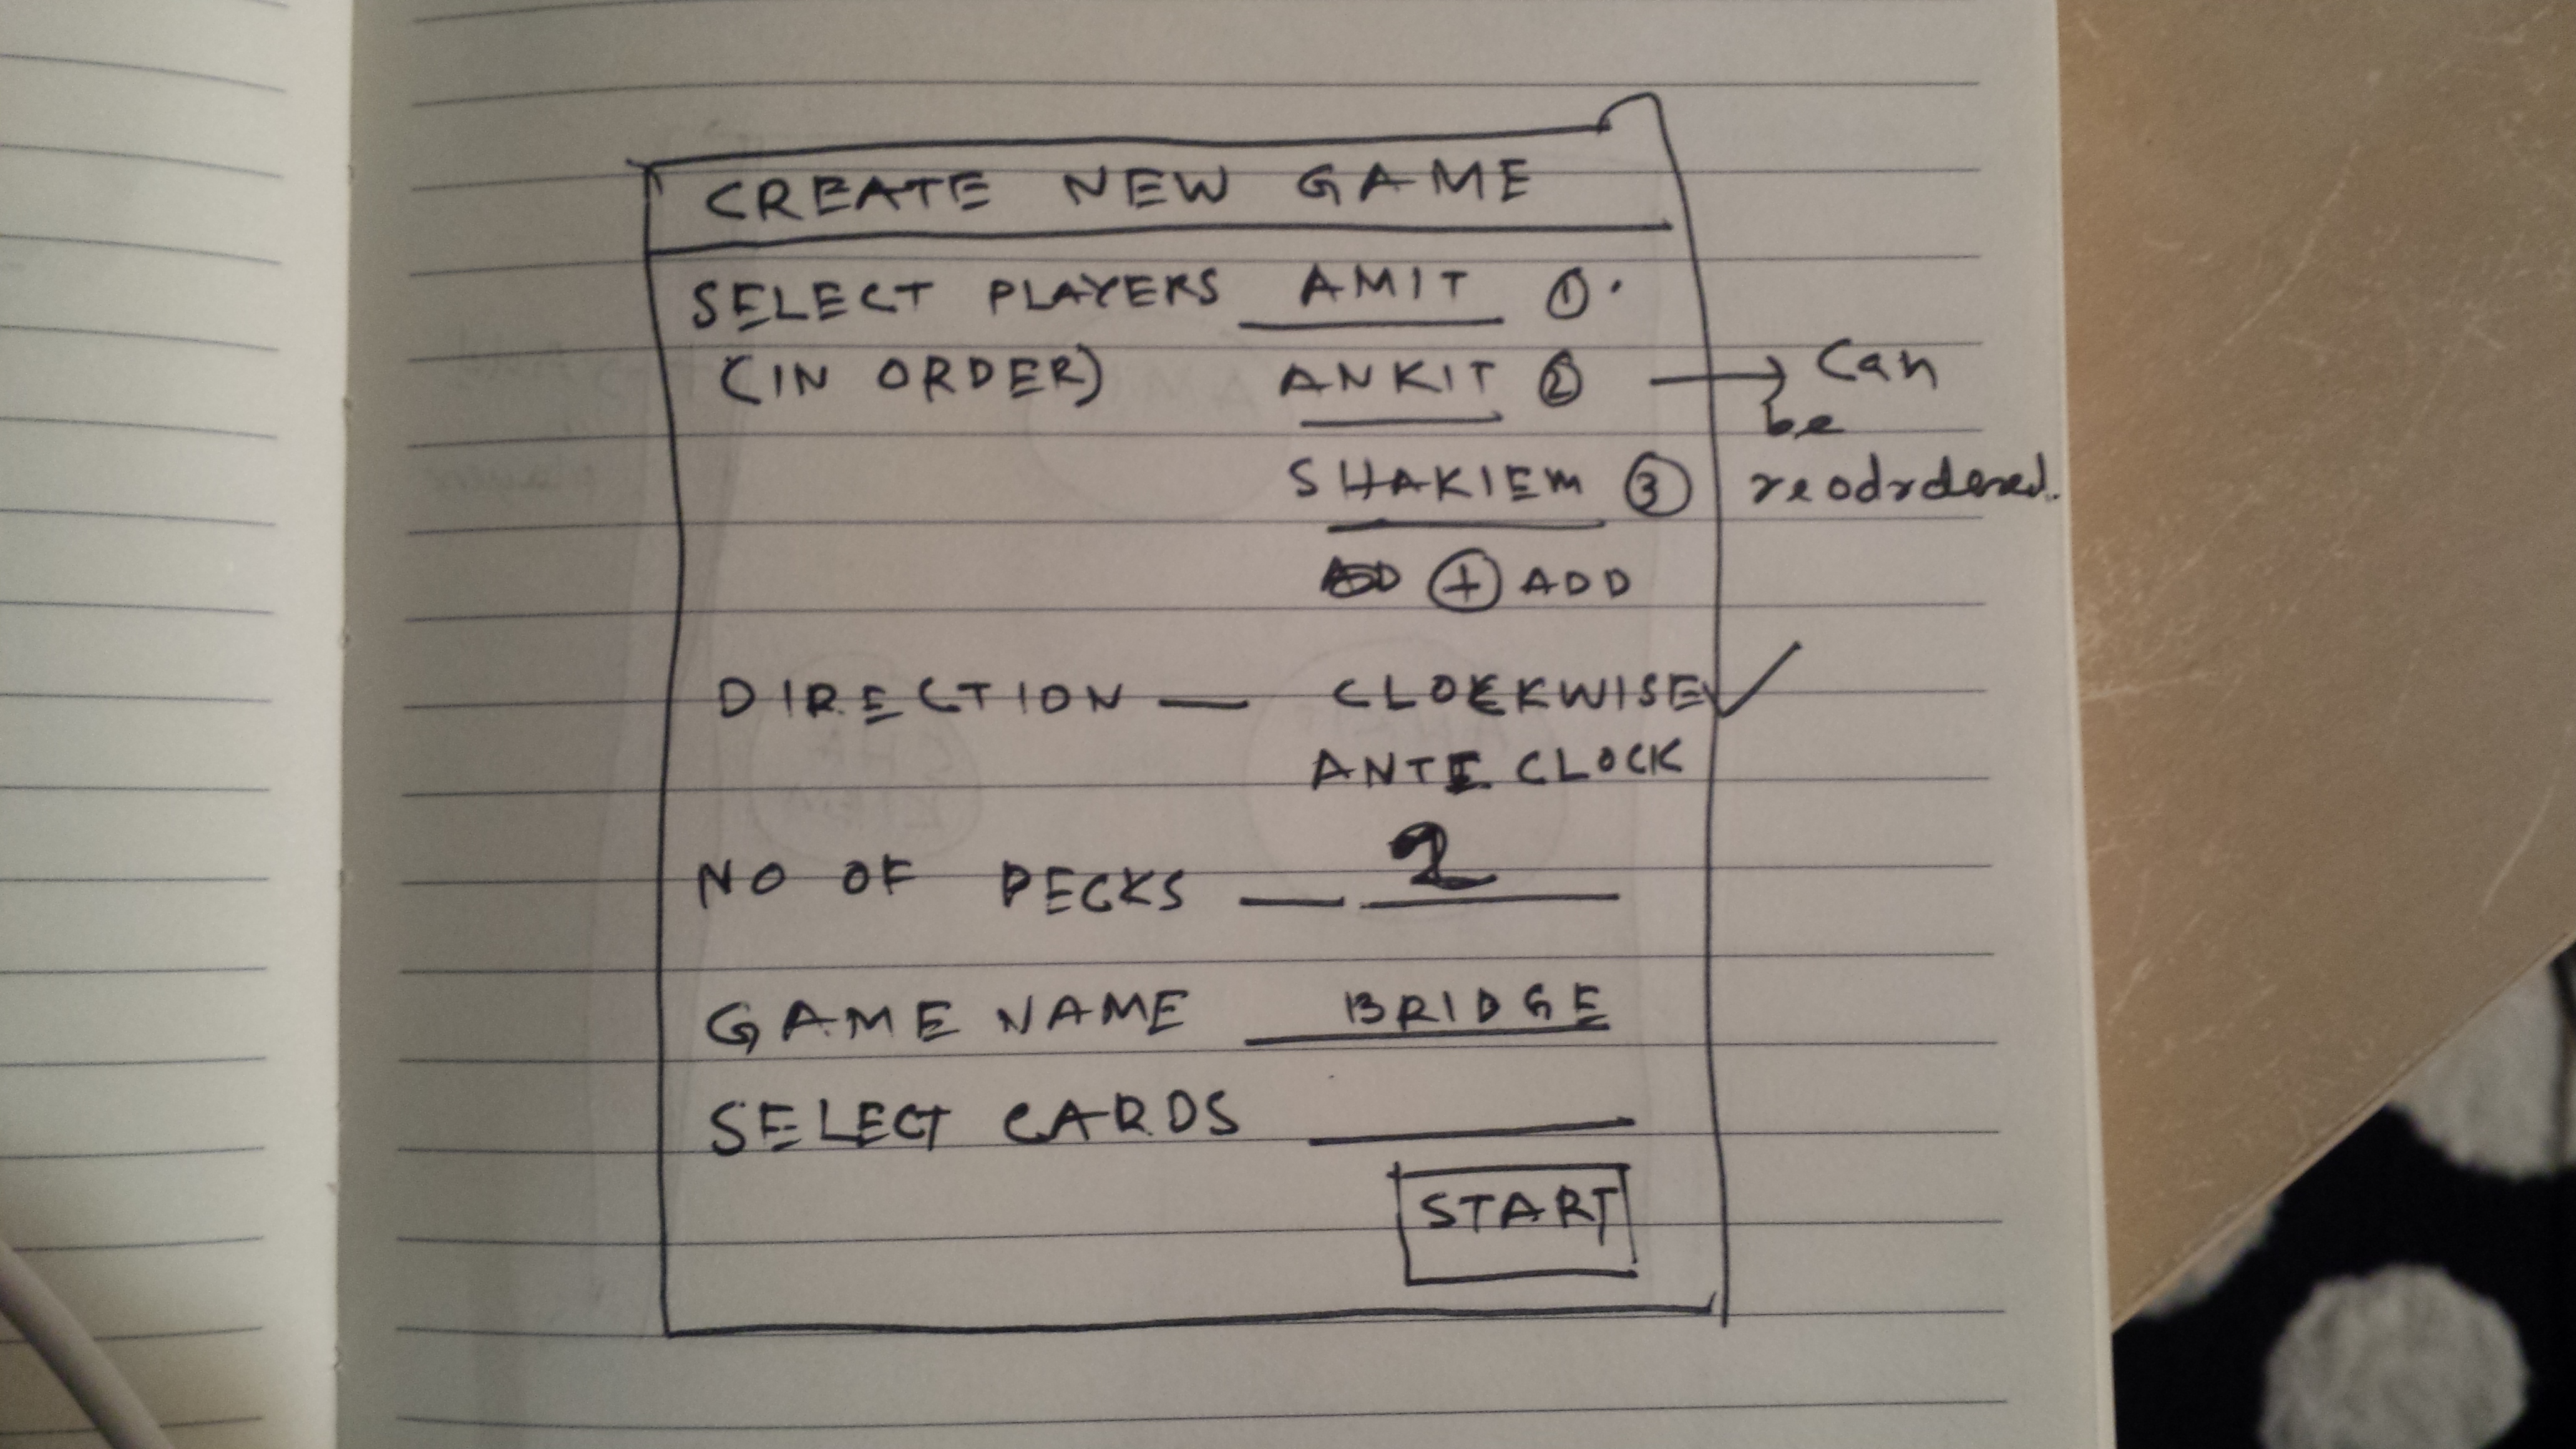 CREATE NEW GAME
SELECT PLAYERS AMIT 1
(IN ORDER) ANKIT 2 → Can
be
SHAKIEM 3 reodrdered.
+ ADD
DIRECTION — CLOCKWISE ✓
ANTE CLOCK
NO OF DECKS — 2
GAME NAME BRIDGE
SELECT CARDS
START